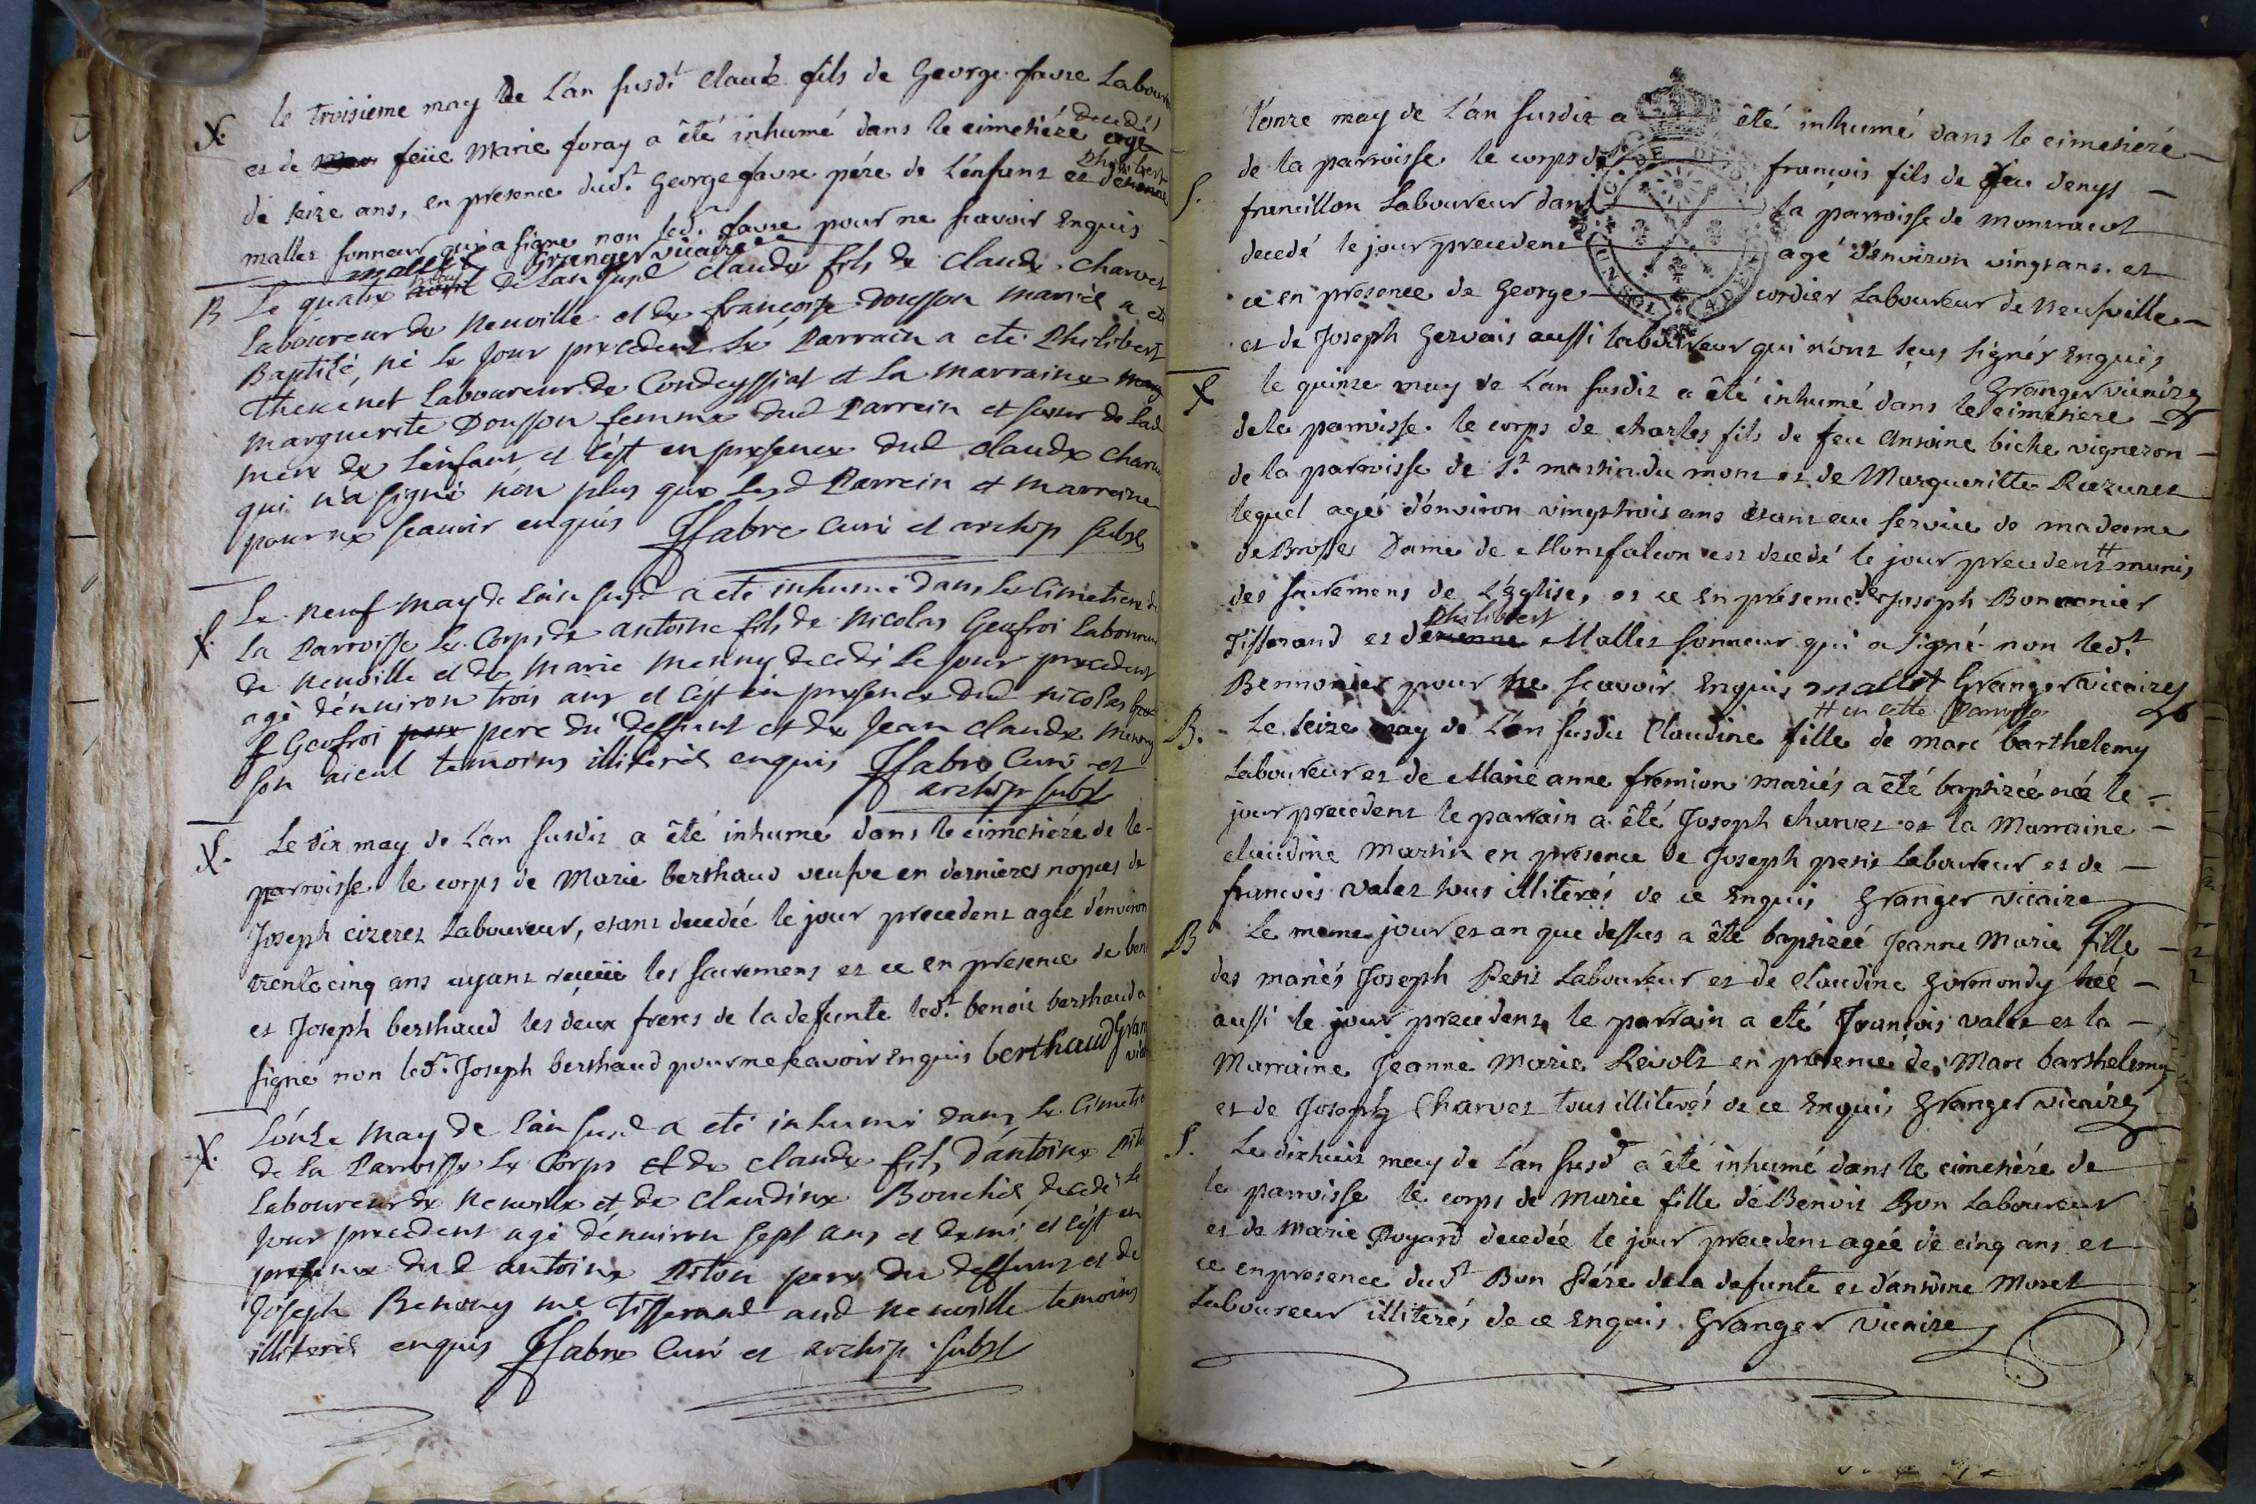 le troisieme may de L'an susd.t Claude fils de George favre Labour
decedé
et de feüe Marie foray a êté inhumé dans le cimetiére agé
de seize ans, en presence dud.t George favre pére de L'enfant et
philibert
mallet sonneur qui a signé non led.t favre pour ne scavoir Enquis
mallet Granger vicaire
B Le quatre may de Lan susd claude fils de claude charvet
Laboureur de Neuville et de francoise Dousson mariés a eté
Baptisé, né le jour precedent Le Parrain a eté Philibert
Thevenet Laboureur de Condeyssiat et La marraine
marguerite Dousson femme dud Parrein et soeur de Lad
mere de L'enfant et c'est en presence dud claude charvet
qui n'a signé non plus que Lesd Parrein et marreine
pour ne scauoir enquis JFabre Curé et archip subst
S. Le neuf may de Lan susd a eté inhumé dans le Cimetiere de
La Parroisse Le Corps de antoine fils de Nicolas Geufroi Laboureur
de neuville et de marie menny decedé Le jour precedent
agé dénuiron trois ans et c'est en presence dud nicolas
Geufroi pere du deffunt et de Jean claude menny
son aieul temoins illiterés enquis JFabre Curé et
archip subst
S. Le dix may de L'an susdit a êté inhumé dans le cimetiére de la
parroisse le corps de Marie berthaud veufve en dernieres nopces de
Joseph cizeret Laboureur, etant decedée le jour precedent agée d'environ
trente cinq ans ayant receüe les sacremens et ce en presence de ben
et Joseph berthaud les deux freres de la defunte led.t benoit berthaud a
signé non led.t Joseph berthaud pour ne scavoir Enquis berthaud Gran
vic
S. L'onze may de L'an susd a eté inhumé dans Le Cimetie
de La Parroisse Le Corps de claude fils d'antoine Piton
Laboureur de neuville et de claudine Bouchié decedé Le
jour precedent agé dénuiron sept ans et demi, et c'est en
presence dud antoine Piton pere du deffunt et de
Joseph Benony me Tisserand aud neuville temoins
illiterés enquis JFabre Curé et archip subst
L'onze may de L'an susdit a êté inhumé dans le cimetiére
S. de la parroisse le corps de françois fils de feu denys
francillon Laboureur dans la parroisse de monracol
decedé le jour precedent agé d'environ vingt ans et
ce en presence de George cordier Laboureur de Neufville
et de Joseph Gervais aussi laboureur qui n'ont sçus signér Enquis
Granger vicaire
S le quinze may de L'an susdit a êté inhumé dans le cimetiére
de la parroisse le corps de charles fils de feu Antoine biche vigneron
de la parroisse de S.t martin du mont et de Margueritte Razuret
lequel agé d'environ vingt trois ans etant au service de madame
de Brosse Dame de Montfalcon est decedé le jour precedent # munis
des sacremens de L'Eglise, et ce en présence de Joseph Bonmonier
philibert
Tisserand et d'etienne Mallet sonneur qui a signé non led.t
Bennonier pour ne scavoir Enquis mallet Granger vicaire
# en cette parroisse
B. Le seize may de L'an susdit Claudine fille de marc barthelemy
Laboureur et de Marie anne fremion mariés a êté baptizée née le
jour precedent le parrain a êté Joseph charvet et la Marraine
claudine Martin en présence de Joseph petit Laboureur et de
francois valet tous illiterés de ce Enquis Granger vicaire
B Le meme jour et an que dessus a êté baptizée Jeanne Marie fille
des mariés Joseph Petit Laboureur et de claudine gormondy née
aussi le jour precedent le parrain a eté francois valet et la
Marraine Jeanne Marie Levolt en présence de Marc barthelemy
et de Joseph Charvet tous illiterés de ce Enquis Granger vicaire
S. Le dixhuit may de L'an susd.t a êté inhumé dans le cimetiére de
la parroisse le corps de Marie fille de Benoit Bon Laboureur
et de Marie Poyard decedée le jour precedent agée de cinq ans et
ce en presence dud.t Bon pére de la defunte et d'antoine Moret
Laboureur illiterés de ce Enquis Granger vicaire